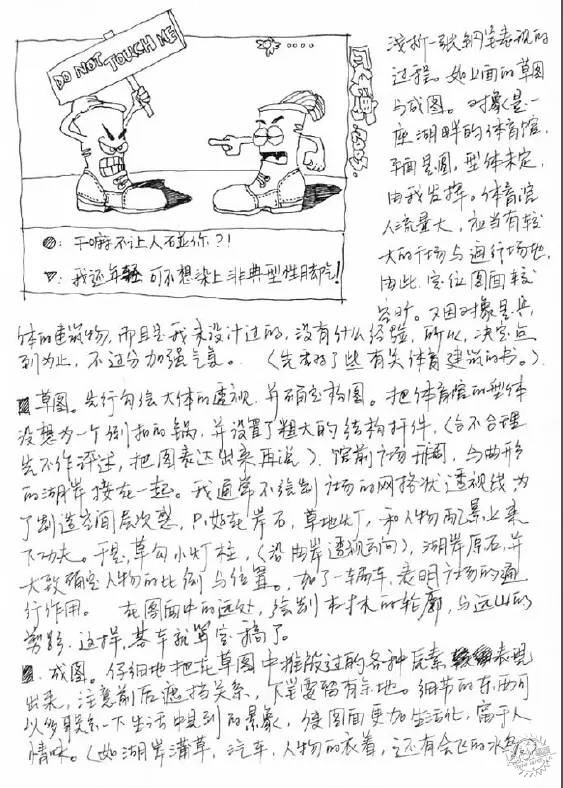 DO NOT TOUCH ME
: 干嘛不让人碰你?!
: 我还年轻 可不想染上非典型性脚气!
浅析一张钢笔表现的
过程。如上面的草图
与成图。对象是一
座湖畔的体育馆,
平面是圆,型体未定,
由我发挥。体育馆
人流量大,应当有较
大的广场与通行场地,
由此,定位图面较
又因对象是具
体的建筑物,而且是我未设计过的,没有什么经验,所以,决定点
到为止,不过分加强气氛。(先查阅了些有关体育建筑的书。)
草图。先行勾绘大体的透视,并确定构图。把体育馆的型体
设想为一个倒扣的锅,并设置了粗大的结构杆件,(合不合理
先不作评述,把图表达出来再说)。馆前广场开阔,与曲形
的湖岸接在一起。我通常不绘制广场的网格状透视线,为
了制造空间层次型,只好在岸石,草地灯,和人物配景上来
下功夫。于是,草勾小灯柱,(沿曲岸透视方向),湖岸原石,并
大致确定人物的比例与位置。加了一辆车,表明广场的通
行作用。在图面中的远处,绘制树木的轮廓,与远山的
剪影。这样,基本就算定稿了。
成图。仔细地把在草图中推敲过的各种元素表现
出来,注意前后遮挡关系,下笔要留有余地。细节的东西可
以多联系一下生活中见到的景象,使图面更加生活化,富于人
情味。(如湖岸蒲草,汽车,人物的衣着,还有会飞的水鸟